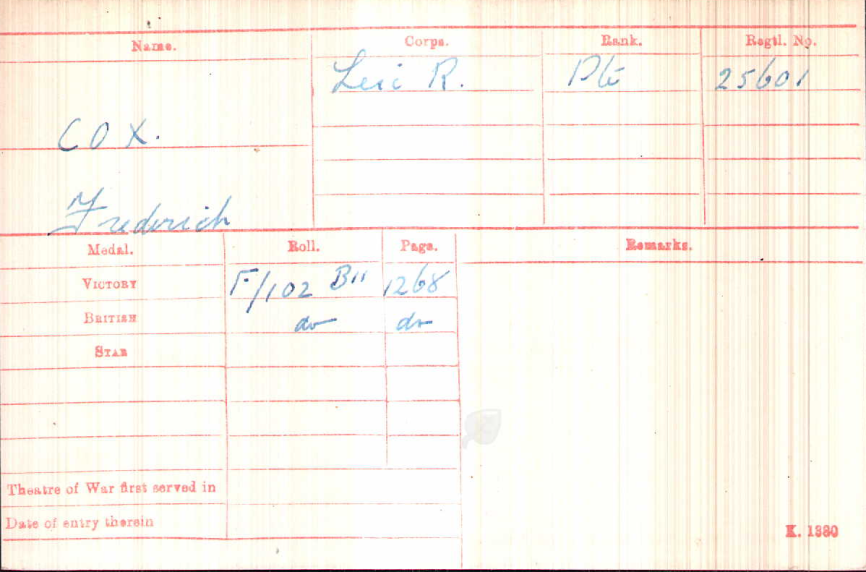 Name. Corps. Rank. Regtl. No.
Leic R. Pte 25601
COX.
Frederick
Medal. Roll. Page. Remarks.
VICTORY F/102 B11 1268
BRITISH do do
STAR
Theatre of War first served in
Date of entry therein
K. 1380